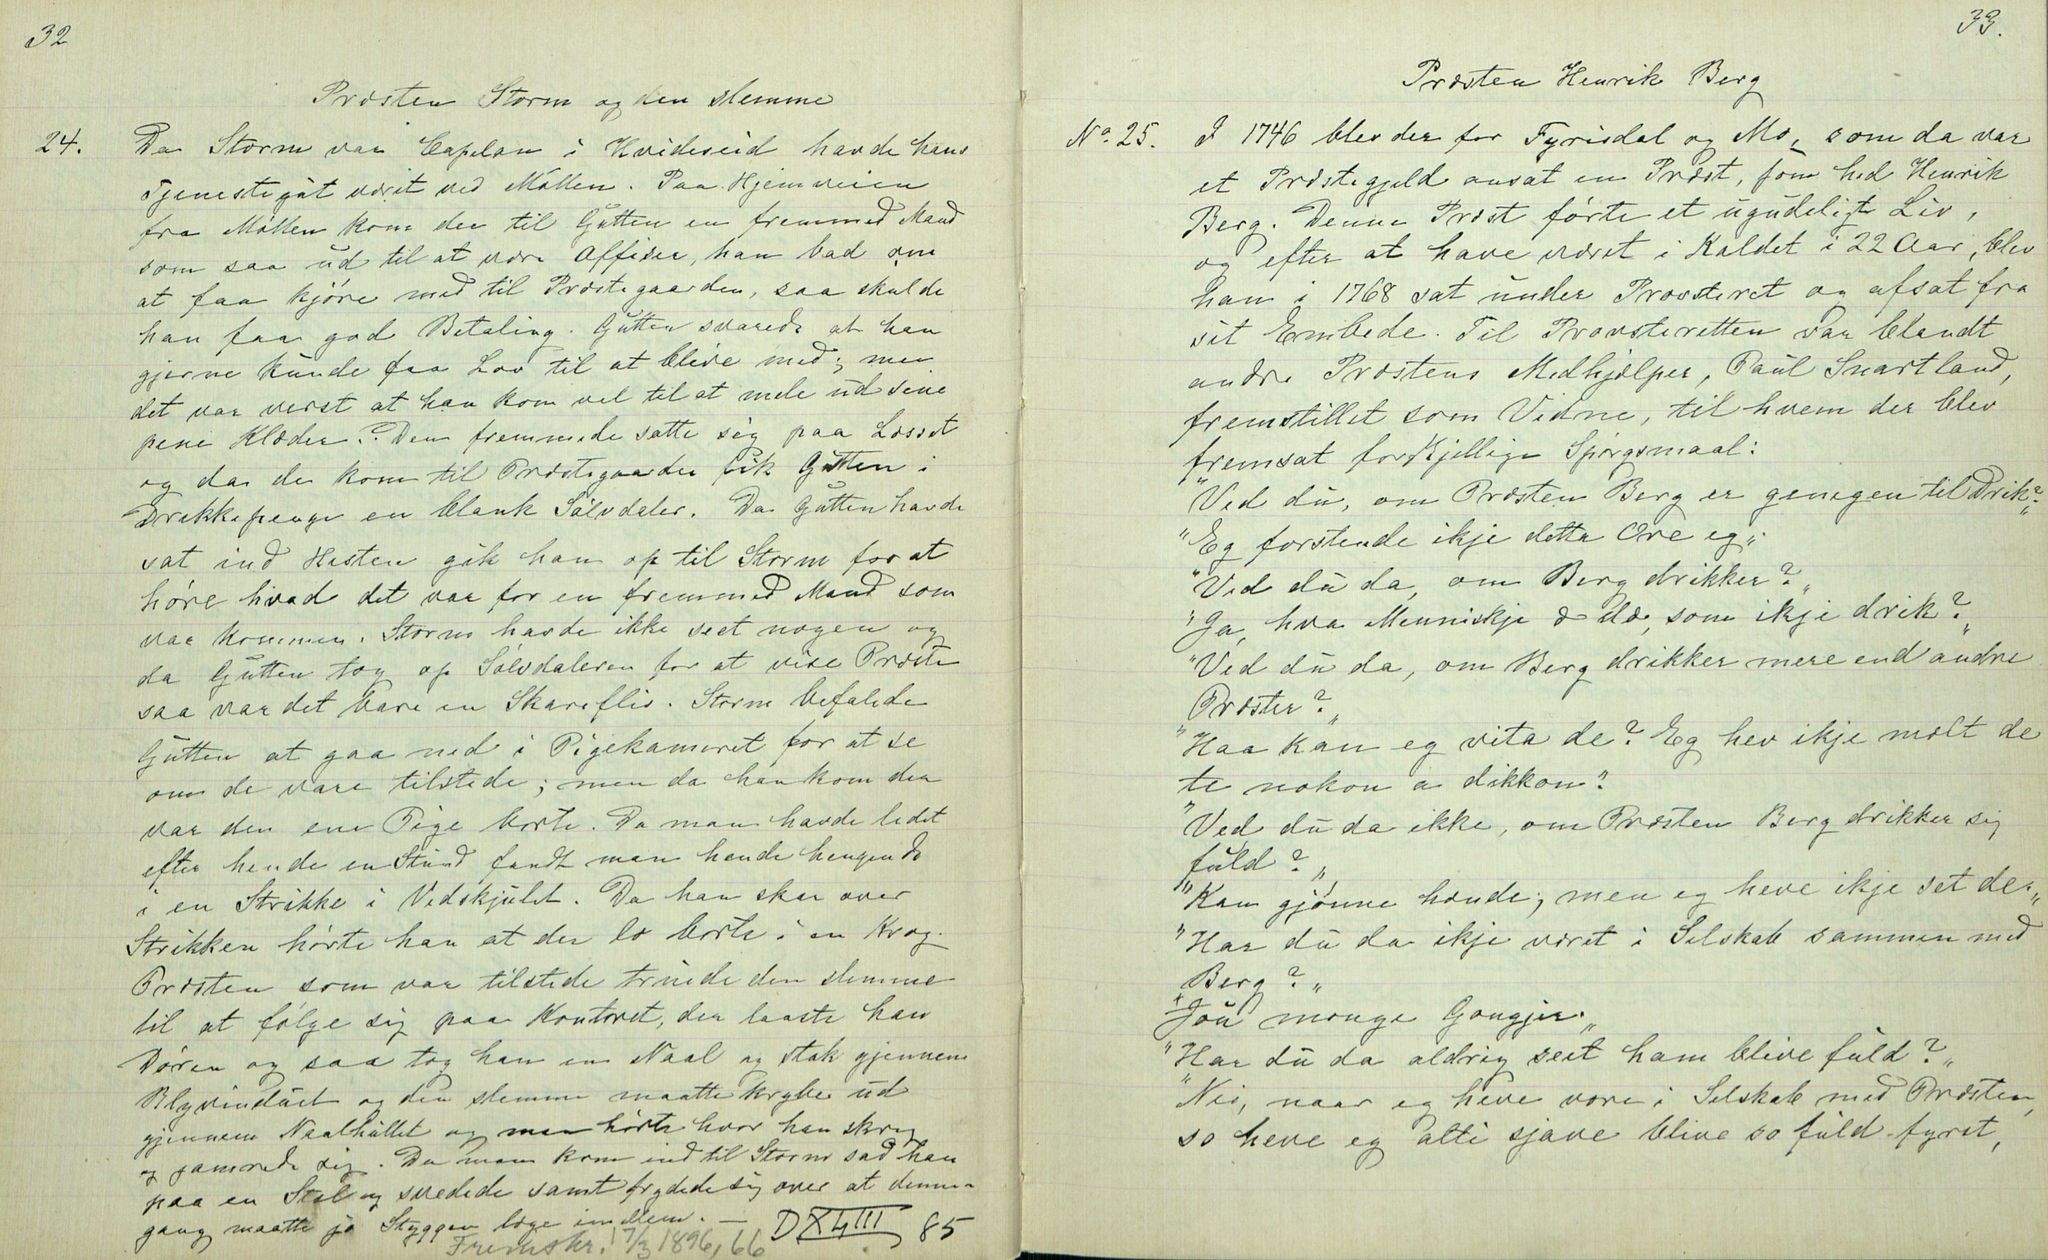 32
Præsten Storm og den slemme
24. Da Storm var Capelan i Hvideseid havde hans
Tjenestegút værit ved Møllen. Paa Hjemveien
fra Møllen kom der til Gútten en fremmed Mand
som saa úd til at være Offiser, han bad om
at faa kjöre med til Præstegaarden, saa skulde
han faa god Betaling. Gútten svarede at han
gjerne kúnde faa Lov til at blive med; men
det var verst at han kom vel til at mele úd sine
pene Klæder. Den fremmede satte sig paa Læsset
og da de kom til Præstegaarden fik Gútten i
Drikkepenge en blank Sölvdaler. Da Gútten havde
sat ind Hesten gik han op til Storm for at
höre hvad det var for en fremmed Mand som
var kommen. Storm havde ikke seet nogen og
da Gútten tog op Sölvdaleren for at vise Præsten
saa var det bare en Skareflis. Storm befalede
Gútten at gaa ned i Pigekameret for at se
om de vare tilstede; men da han kom der
var den ene Pige borte. Da man havde ledet
efter hende en Stúnd fandt man hende hengende
i en Strikke i Vedskjúlet. Da han skar over
Strikken hörte han at der lo borte i en Krog.
Præsten som var tilstede truede den slemme
til at fölge sig paa Kontoret, der laaste han
Dören og saa tog han en Naal og stak gjennem
Blyvindúet og den slemme maatte krybe úd
gjennem Naalhúllet og man hörte hvor han skreg
og jamrede sig. Da man kom ind til Storm sad han
paa en Stol og svedede samt frydede sig over at denne
gang maatte jo Styggen læge imellem. — D XLIII 85
Fremskr. 17/3 1896, 66
33.
Præsten Henrik Berg
No. 25. I 1746 blev der for Fyrisdal og Mo, som da var
et Præstegjeld ansat en Præst, som hed Henrik
Berg. Denne Præst förte et úgúdeligt Liv,
og efter at have været i Kaldet i 22 Aar, blev
han i 1768 sat únder Provsteret og afsat fra
sit Embede. Til Provsteretten var blandt
andre Præstens Medhjælper, Paúl Snartland,
fremstillet som Vidne, til hvem der blev
fremsat forskjellige Spörgsmaal:
"Ved dú, om Præsten Berg er genegen til Drik?"
"Eg forstende ikje detta Ore eg".
"Ved dú da, om Berg drikker?"
"Ja, hva Menniskje æ dæ, som ikje drik?"
"Ved dú da, om Berg drikker mere end andre
Præster?"
"Haa kan eg vita de? Eg hev ikje mælt de
te nokon a dikkon".
"Ved dú da ikke, om Præsten Berg drikker sig
fúld?"
"Kan gjönne hænde; men eg heve ikje set de."
"Har dú da ikje været i Selskab sammen med
Berg?"
"Joú mange Gongjer."
"Har dú da aldrig seet ham blive fúld?"
"Nei, naar eg heve vore i Selskab med Præsten,
so heve eg alti sjave blive so fúld fyrst,